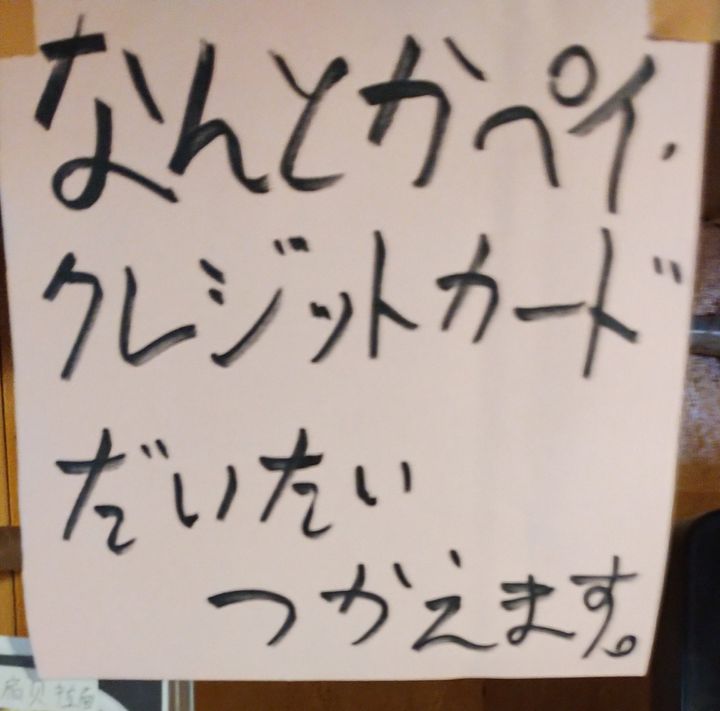 なんとかペイ・
クレジットカード
だいたい
つかえます。